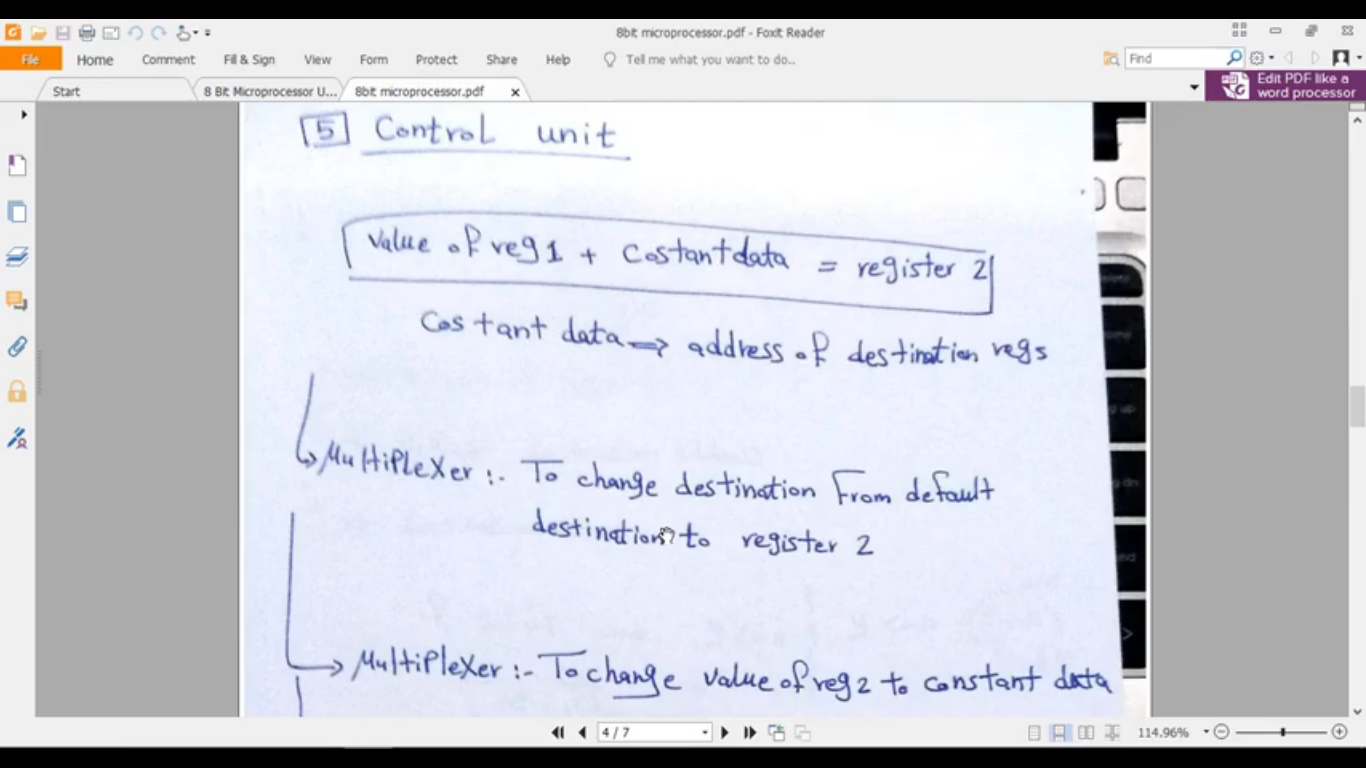 8bit microprocessor.pdf - Foxit Reader
File Home Comment Fill & Sign View Form Protect Share Help Tell me what you want to do.. Find
Start 8 Bit Microprocessor U... 8bit microprocessor.pdf
Edit PDF like a
word processor
5 Control unit
Value of reg1 + Costant data = register 2
Costant data => address of destination regs
Multiplexer :- To change destination From default
destination to register 2
Multiplexer :- To change value of reg2 to constant data
4 / 7 114.96%